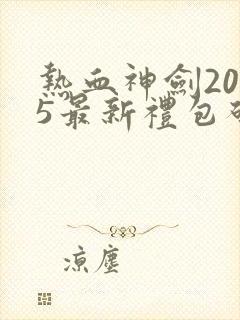 熱血神劍20
5最新禮包
涼塵